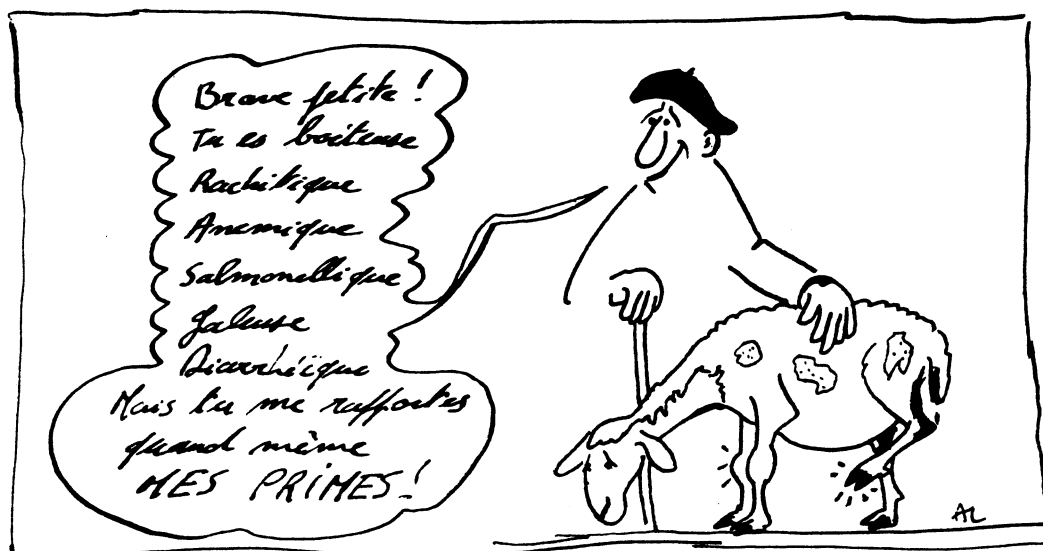 Brave petite !
Tu es boiteuse
Rachitique
Anemique
Salmonellique
Galeuse
Diarrhéïque
Mais tu me rapportes
quand même
MES PRIMES !
AL